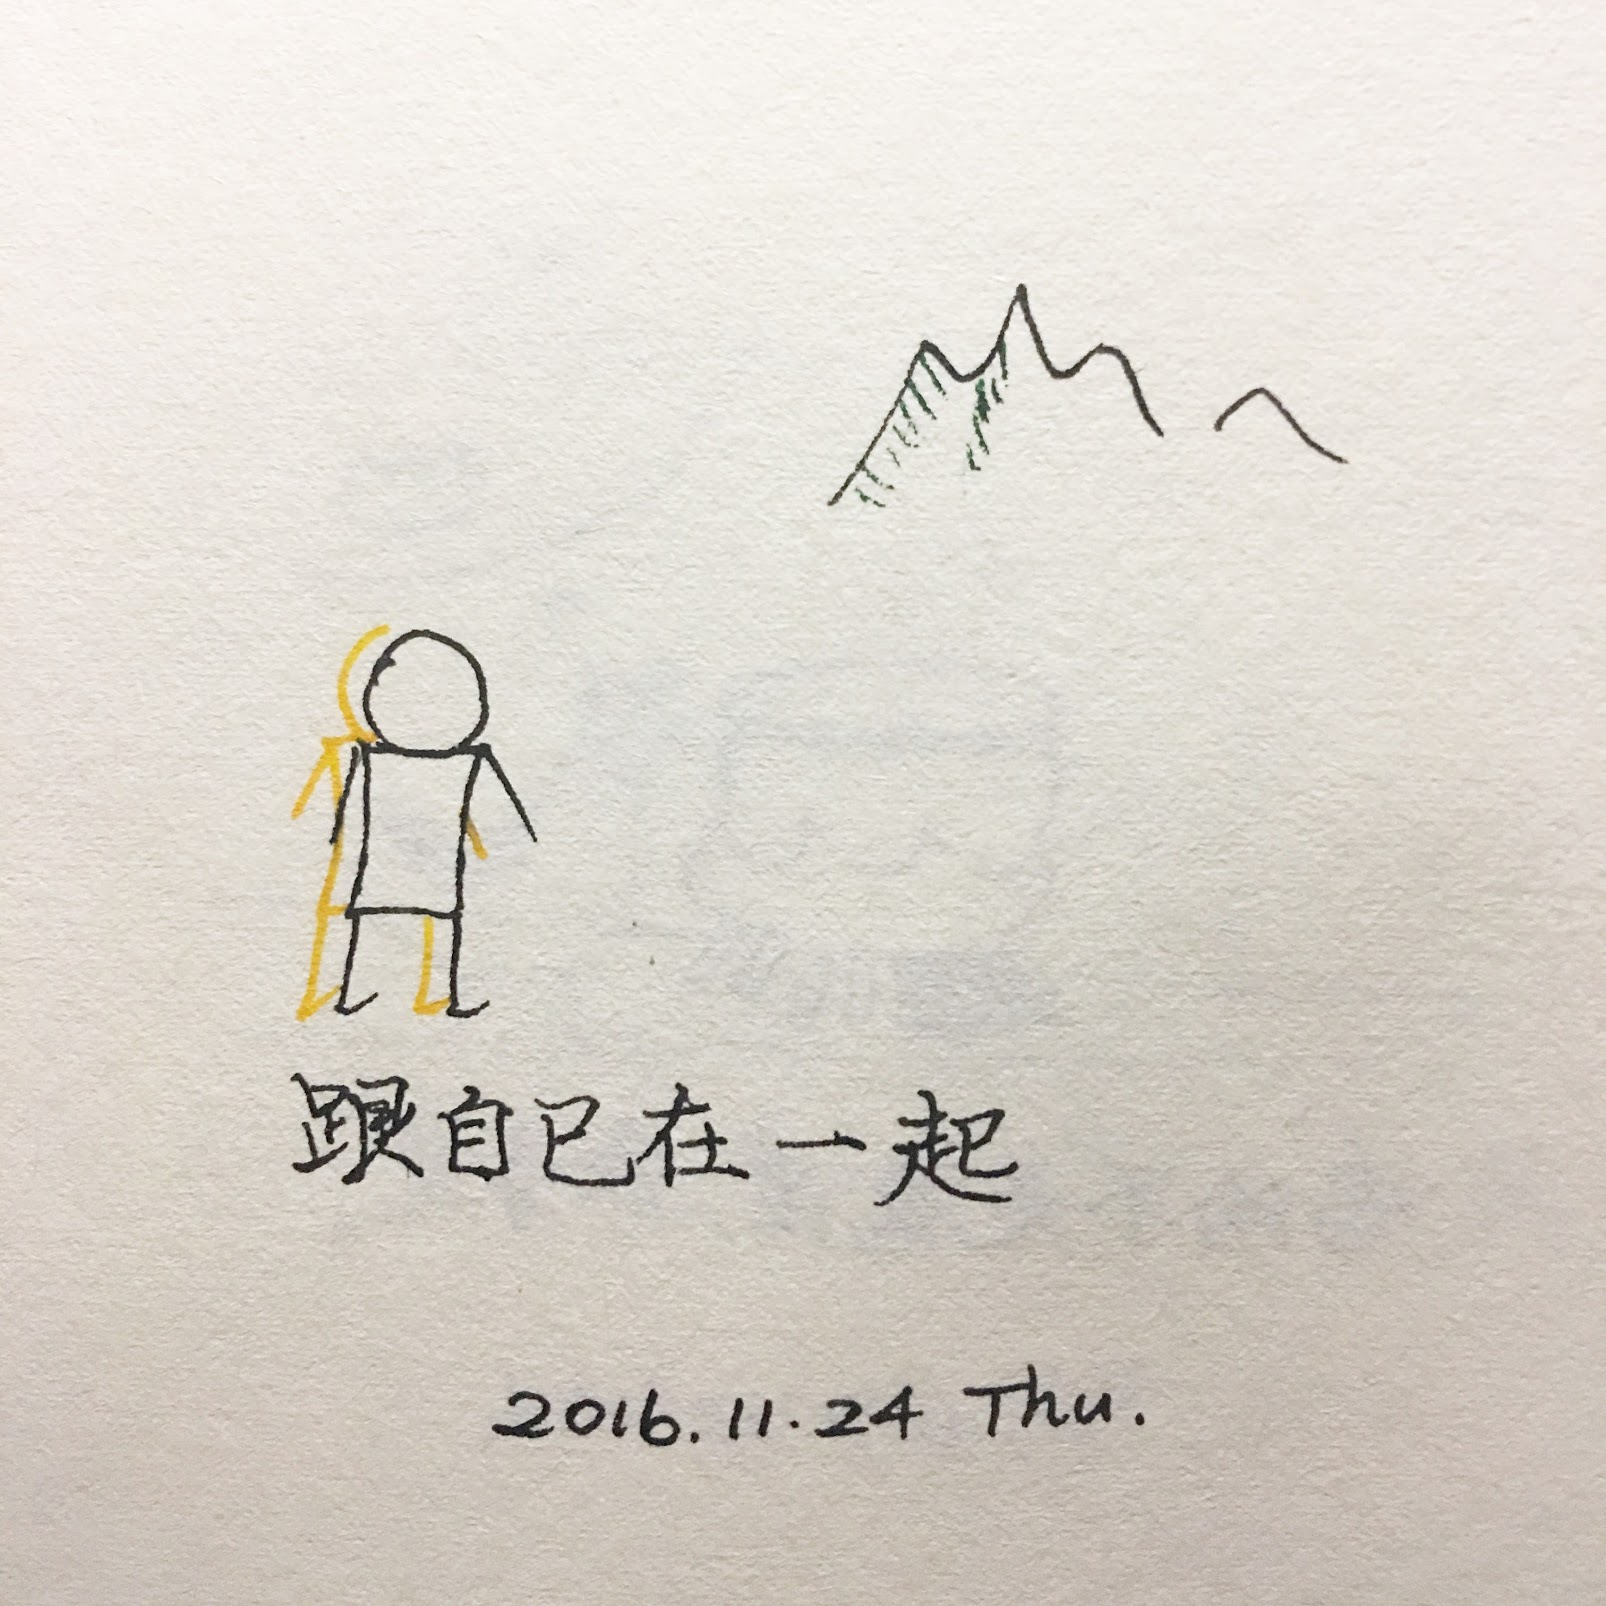 跟自己在一起
2016.11.24 Thu.